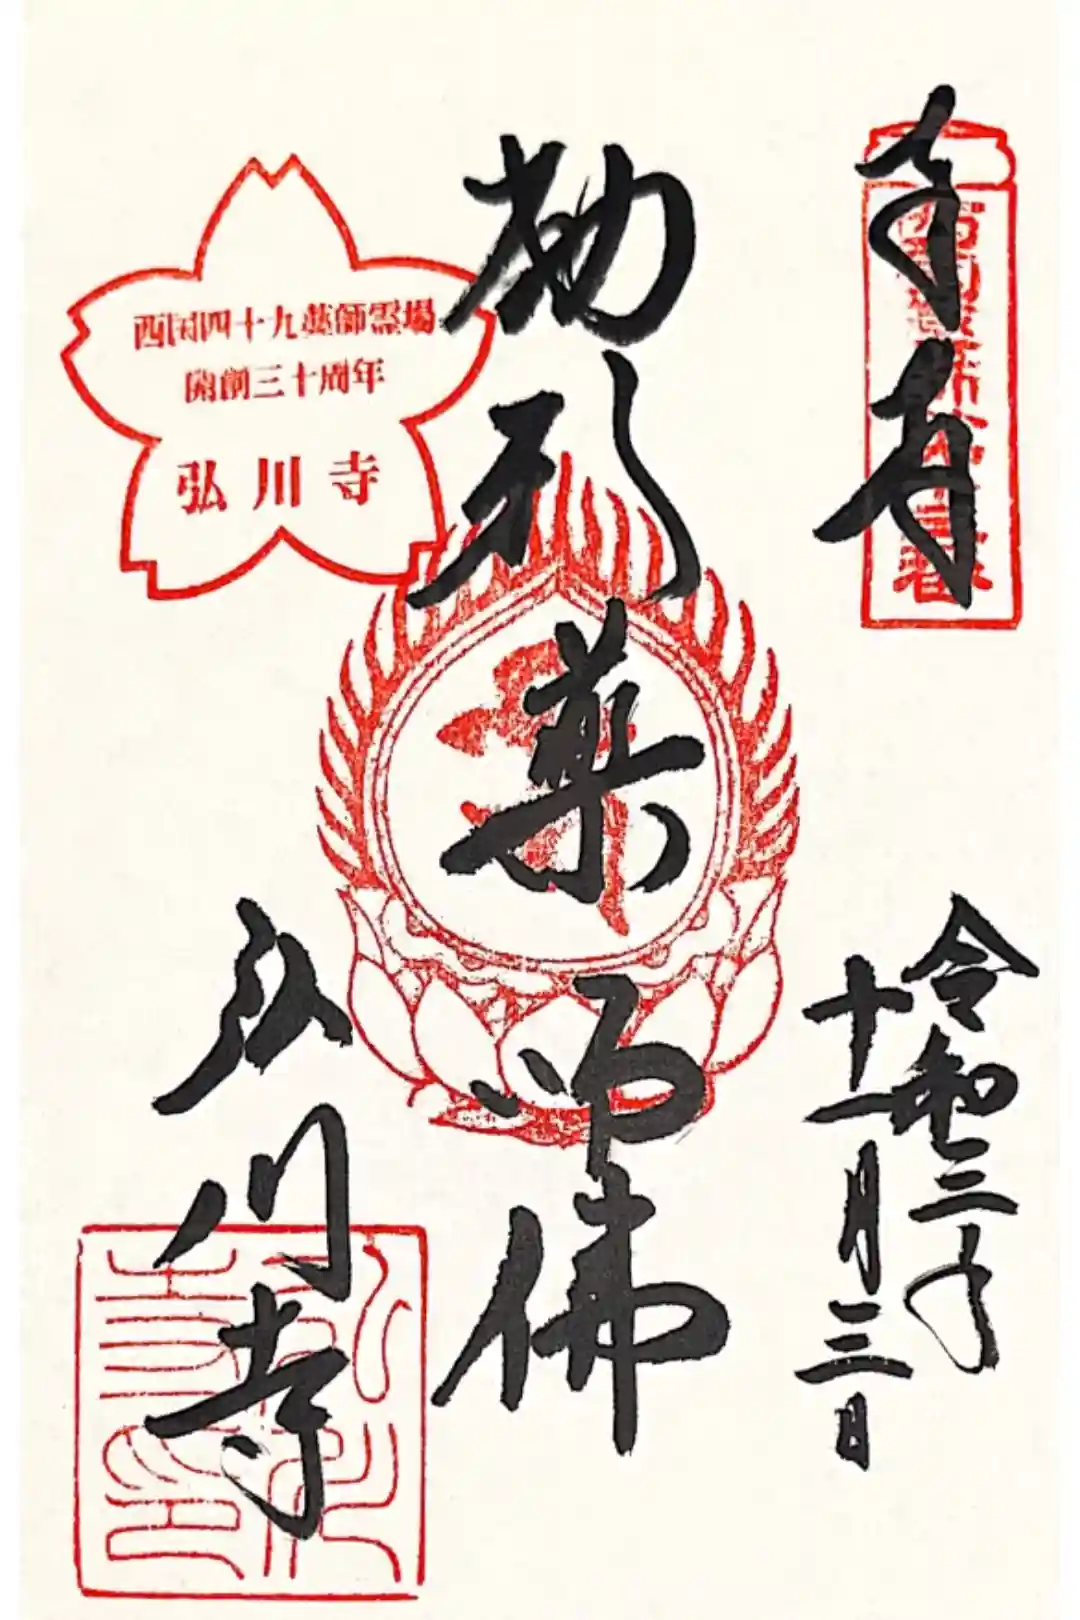 奉拝
西国薬師第十三番
令和三年
十一月三日
勅願薬師佛
西国四十九薬師霊場
開創三十周年
弘川寺
弘川寺